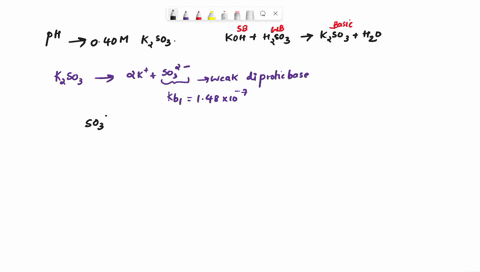 pH → 0.40M K₂SO₃.
SB WB Basic
KOH + H₂SO₃ → K₂SO₃ + H₂O
K₂SO₃ → 2K⁺ + SO₃²⁻ → weak diprotic base
Kb₁ = 1.48 × 10⁻⁷
SO₃